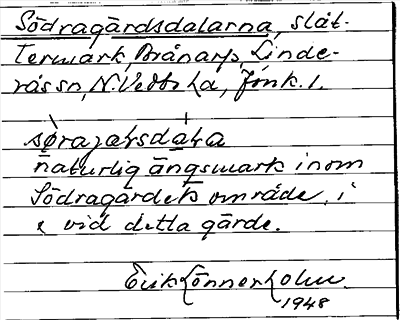 Södragärdsdalarna, slåt-
termark, Brånarp, Linde-
rås sn, N. Vedbo hd, Jönk. l.
naturlig ängsmark inom
Södragärdets område, i
vid detta gärde.
Erik Lönnerholm.
1948